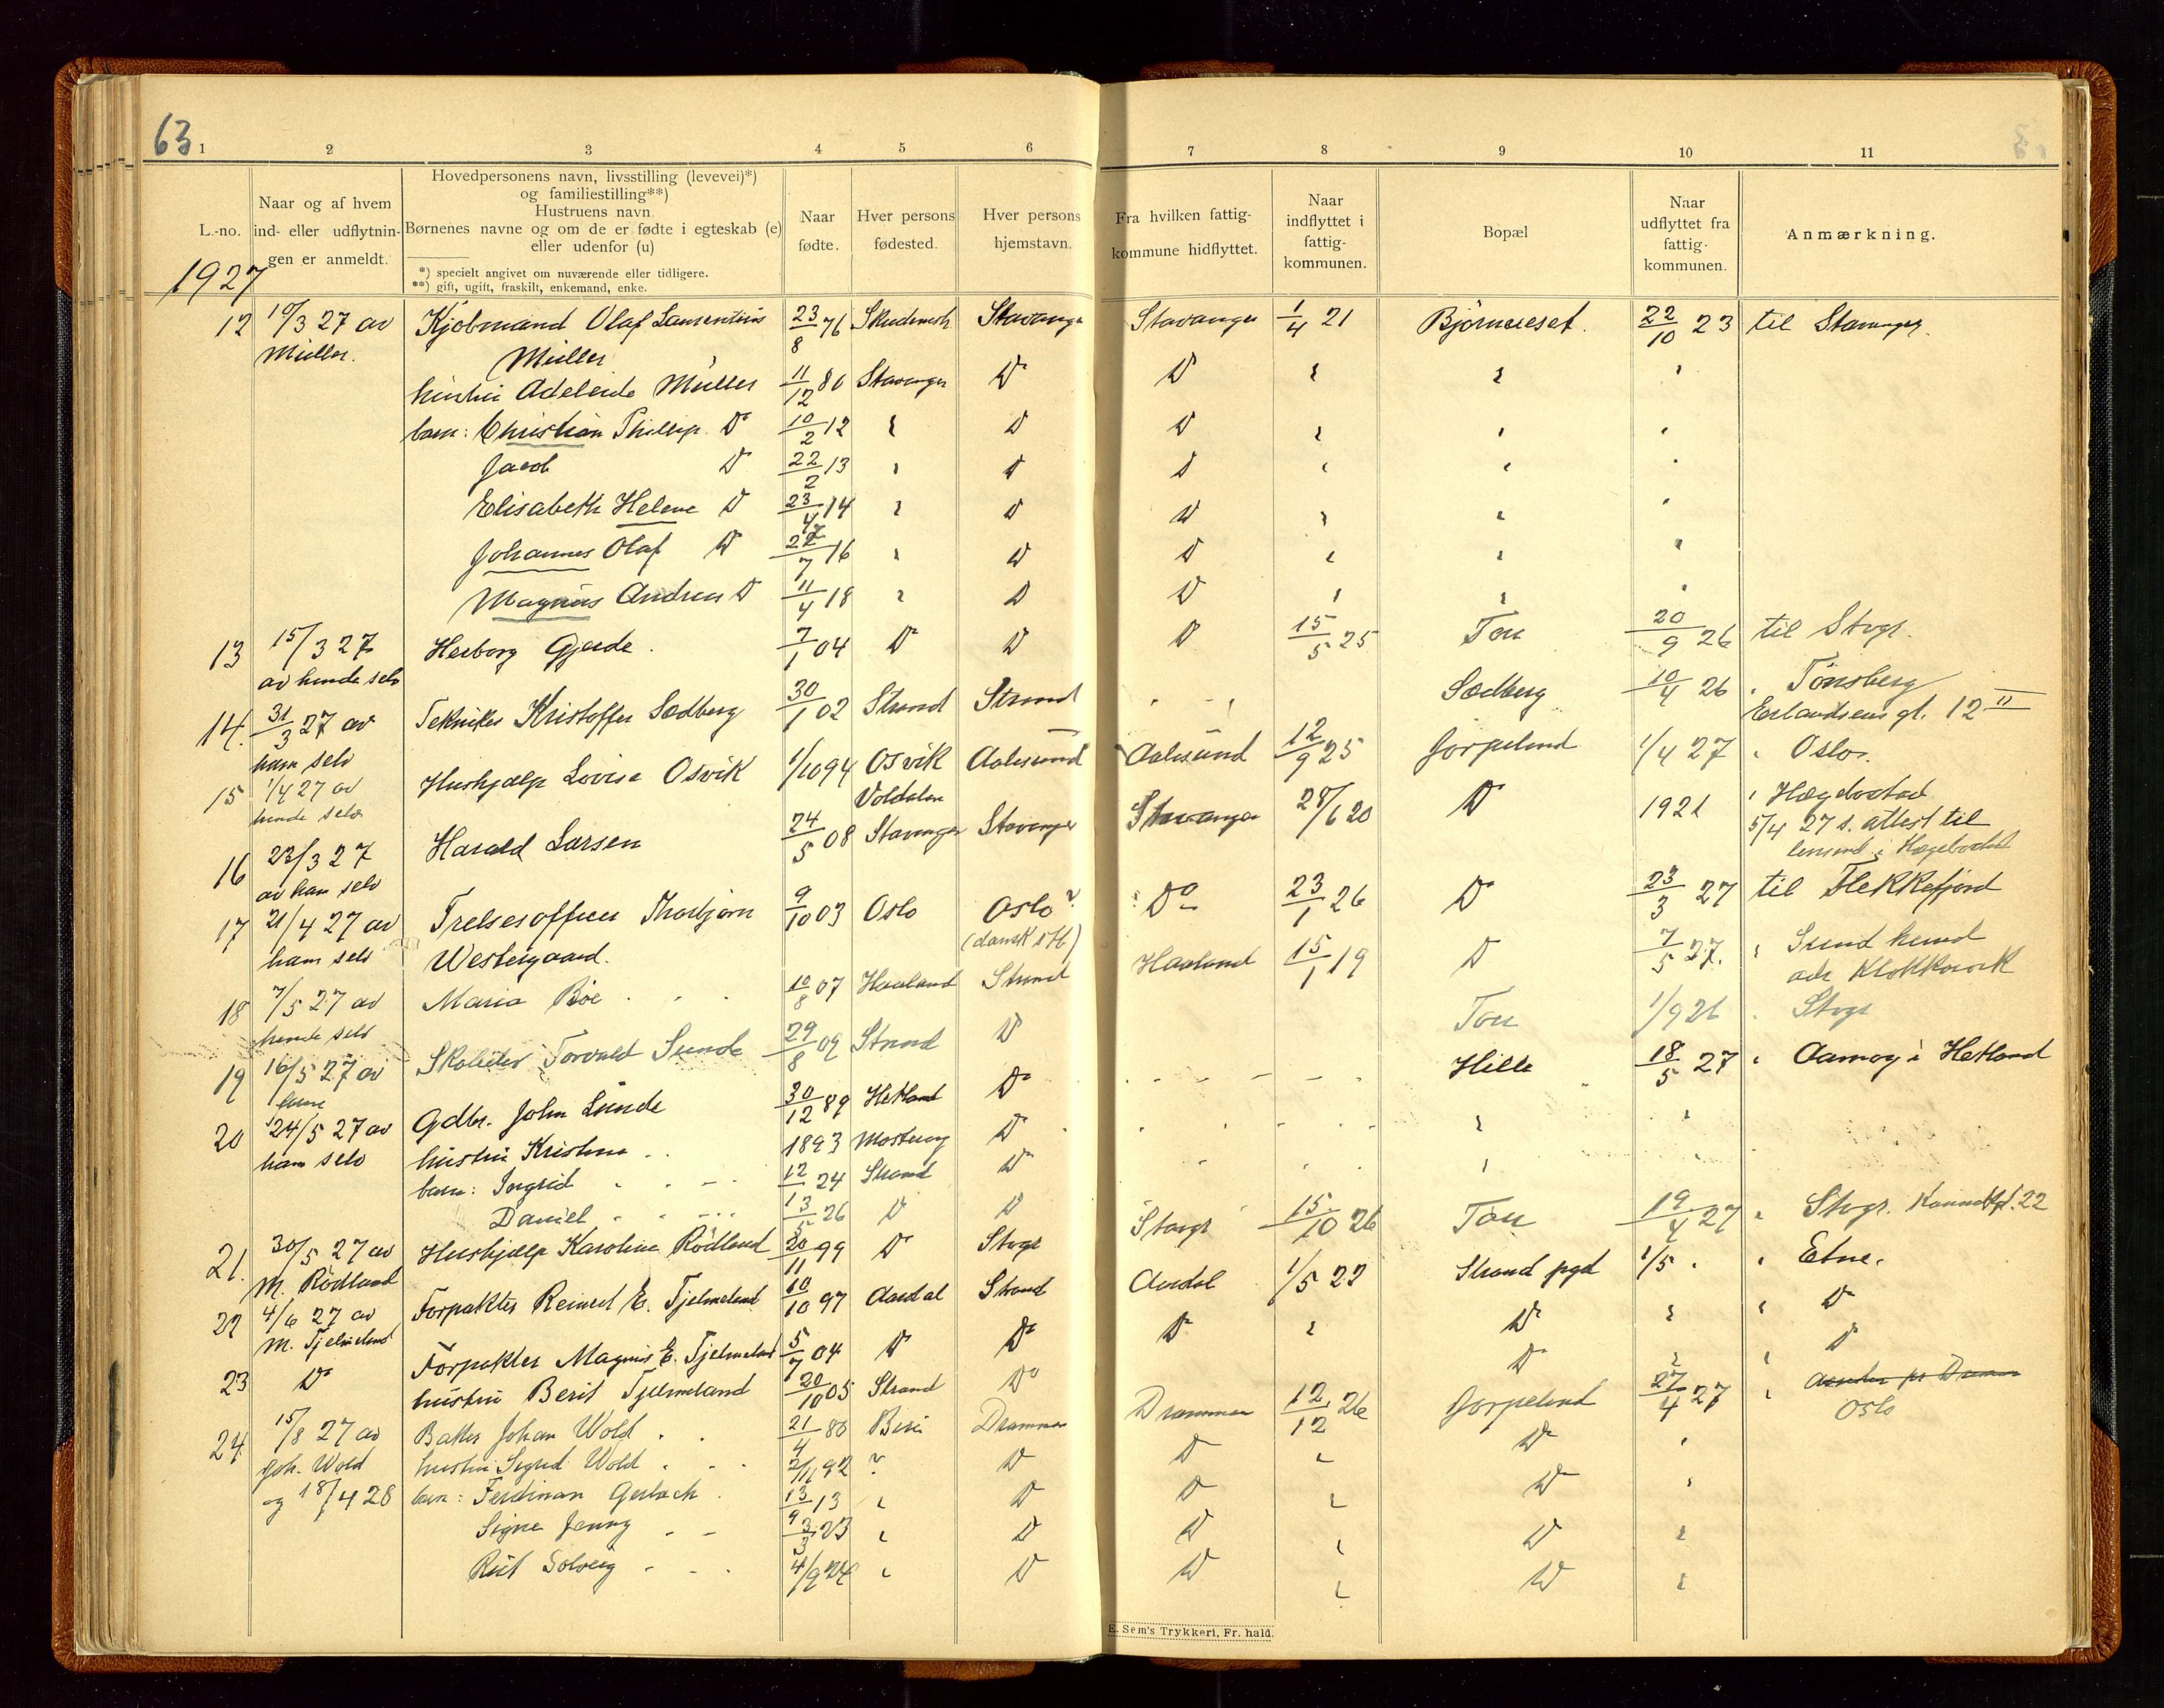 63
1 2 3 4 5 6 7 8 9 10 11
L.-no.
Naar og af hvem ind- eller udflytnin- gen er anmeldt.
Hovedpersonens navn, livsstilling (levevei)*)
og familiestilling**)
Hustruens navn.
Børnenes navne og om de er fødte i egteskab (e)
eller udenfor (u)
*) specielt angivet om nuværende eller tidligere.
**) gift, ugift, fraskilt, enkemand, enke.
Naar fødte.
Hver persons fødested.
Hver persons hjemstavn.
Fra hvilken fattig- kommune hidflyttet.
Naar indflyttet i fattig- kommunen.
Bopæl
Naar udflyttet fra fattig- kommunen.
Anmærkning.
1927
12 10/3 27 av Kjøbmand Olaf Laurentius 23/8 76 Stavanger Stavanger 1/4 21 22/10 23 til Stavanger.
Müller. Müller
hustru Adeleide Müller 11/12 80 Stavanger Do Do
barn: Christian Phillip Do 10/2 12 Do Do
Jacob Do 22/2 13 Do Do
Elisabeth Helene Do 23/4 14 Do Do
Johannes Olaf Do 16 Do Do
Magnus Andreas Do 11/4 18 Do Do
13 15/3 27 Herborg Gjerde. 7/1 04 Do Do Do 15/5 25 Tau 20/9 26 til Stvgr.
av hende selv
14. 31/3 27 av Tekniker Kristoffer Sedberg 30/1 02 Strand Strand Sedberg 10/4 26 " Tønsberg
ham selv Erlandsens gt. 12 II
15 1/4 27 av Hushjælp Lovise Osvik 1/10 94 Osvik Aalesund Aalesund 12/9 25 Jørpeland 1/4 27 " Oslo.
hende selv Voldalen
16 23/3 27 Harald Larsen 24/5 08 Stavanger Stavanger Stavanger 28/6 20 Do 1921 " Hægebostad
av ham selv 5/4 27 s. attest til
lensmd. i Hægebostad
17 21/4 27 av Frelsesofficer Thorbjørn 9/10 03 Oslo Oslo? Do 23/1 26 Do 23/3 27 til Flekkefjord
ham selv Westergaard. (dansk
18 7/5 27 av Maria Bøe 10/8 07 Haaland Strand Haaland 15/1 19 Do 7/5 27. " Sund
hende selv adr Klokkarvik
19 16/5 27 av Torvald Sunde 29/8 09 Strand Do Tau 1/9 26 " Stvgr
20 24/5 27 av Gdbr. John Lunde 30/12 89 Hetland Do Hille 18/5 27 " Aamøy i Hetland
ham selv hustru Kristine 1893 Mosterøy Do
barn: Ingrid 12/ 24 Strand Do
Daniel 13/5 26 Do Do
21. 30/5 27 av Hushjælp Karoline Rødland 20/11 99 Do Stvgr Stavgr 15/10 26 Tau 19/4 27 " Stvgr.
M. Rødland
22 4/6 27 av Forpakter Reinert E. Tjelmeland 10/10 97 Aardal Strand Aardal 1/5 22 Strand pgd 1/5 " " Etne.
M. Tjelmeland
23 Do Forpakter Magnus E. Tjelmeland 5/7 04 Do Do Do Do Do
hustru Berit Tjelmeland 20/10 05 Strand Do Do Do
24 15/8 27 av Baker Johan Wold 21/4 80 Biri Drammen Drammen 12/12 26 Jørpeland 27/4 27 " Oslo
Joh. Wold hustru Sigrid Wold 2/11 92 ? Do Do Do
og 18/4 28 barn: Ferdinan Gerlach 13/9 13 Do Do Do
Signe Jenny 3/3 23 Do Do Do
Rut Solveig 4/9 24 Do Do Do
E. Sem's Trykkeri, Fr. hald.